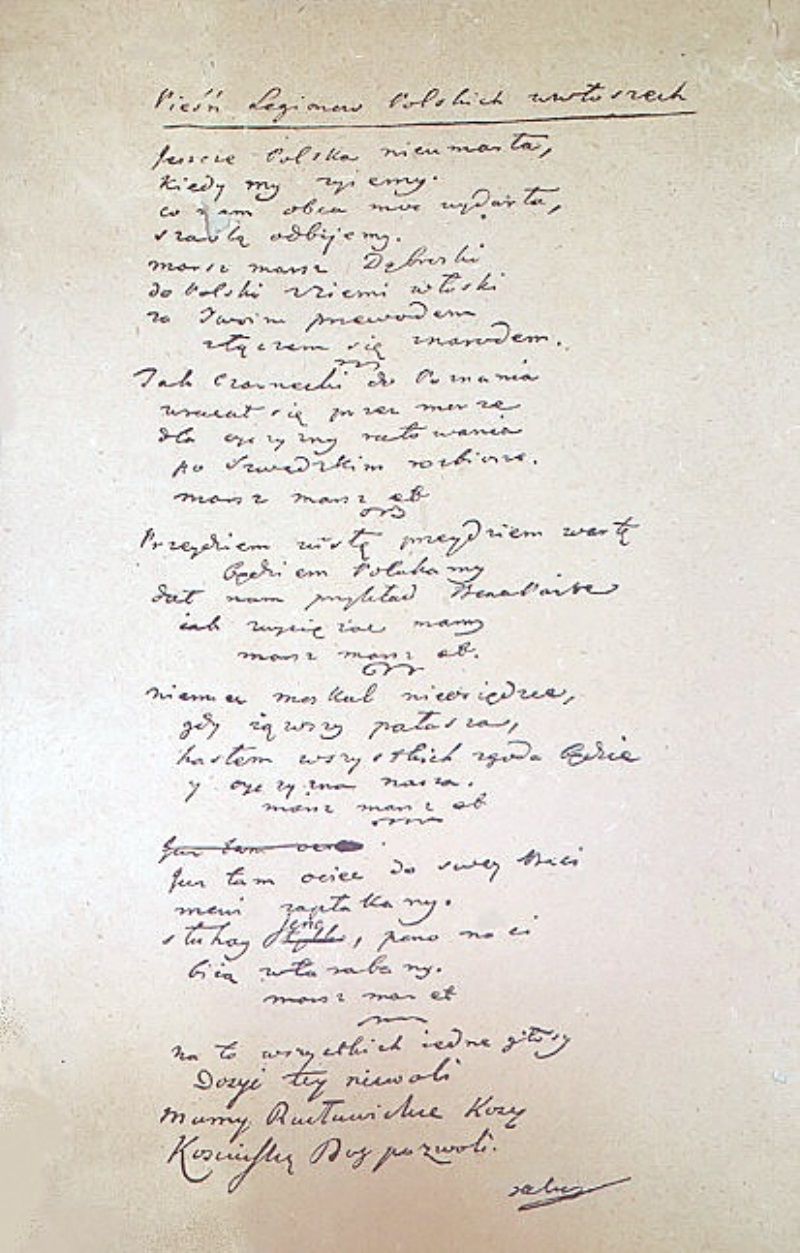 Pieśń Legionow Polskich wewłoszech
Jeszcze Polska nieumarła,
kiedy my żyiemy.
co nam obca moc wydarła,
szablą odbijemy.
marsz marsz Dąbroski
do Polski zziemi włoski
za Twoim przewodem
złączem się znarodem.
Jak Czarnecki do Poznania
wracał się przez morze
dla oyczyzny ratowania
po Szwedzkim rozbiorze.
marsz marsz et
Przeydziem wisłę przeydziem wartę
będziem Polakamy
dał nam przykład Bonaparte
iak zwyciężac mamy
marsz marsz et.
niemiec moskal nieosiędzie,
gdy iąwszy pałasza,
hasłem wszystkich zgoda będzie
y oyczyzna nasza.
marsz marsz et
Jusz tam
Jusz tam ociec do swey Basi
mowi zapłakany.
słuhay Jeno, pono nasi
biią wtarabany.
marsz mar et
na to wszystkich iedne głosy
Dosyć tey niewoli
Mamy Racławickie Kosy
Kosciuszkę Bog pozwoli.